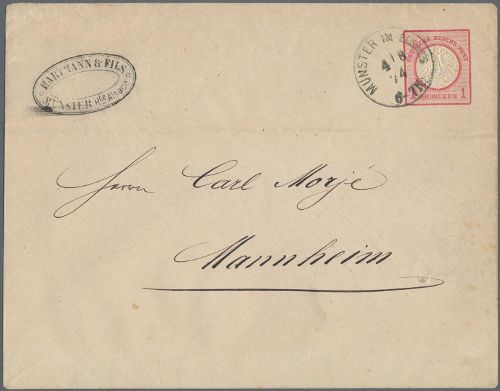 HARTMANN & FILS
MUNSTER Hte Alsace
MÜNSTER IM
4/8
74
6-7N
DEUTSCHE REICHS-POST
1 GROSCHEN 1
Herrn Carl Morjé
Mannheim